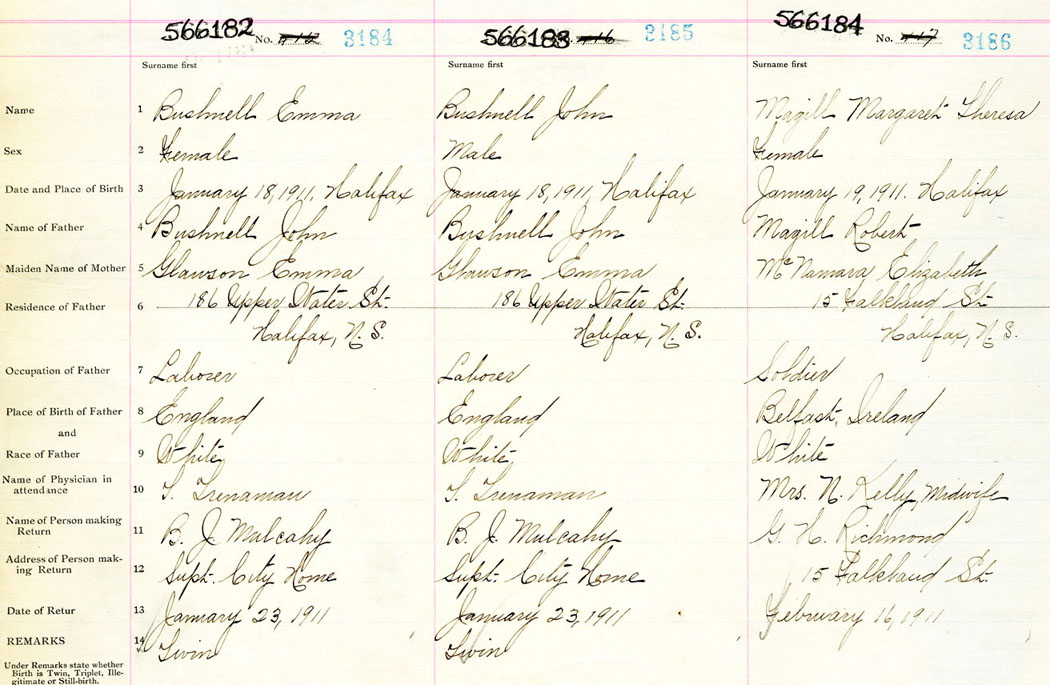 566182 No. 3184 566183 No. 3185 566184 No. 3186
Surname first Surname first Surname first
Name 1 Bushnell Emma Bushnell John Magill Margaret Theresa
Sex 2 Female Male Female
Date and Place of Birth 3 January 18, 1911, Halifax January 18, 1911, Halifax January 19, 1911. Halifax
Name of Father 4 Bushnell John Bushnell John Magill Robert
Maiden Name of Mother 5 Glawson Emma Glawson Emma McNamara Elizabeth
Residence of Father 6 186 Upper Water St. 186 Upper Water St. 15 Falkland St.
Halifax, N.S. Halifax, N.S. Halifax, N.S.
Occupation of Father 7 Laborer Laborer Soldier
Place of Birth of Father 8 England England Belfast, Ireland
and
Race of Father 9 White White White
Name of Physician in
attendance 10 T. Trenaman T. Trenaman Mrs. N. Kelly, Midwife
Name of Person making
Return 11 B. J. Mulcahy B. J. Mulcahy G. H. Richmond
Address of Person mak-
ing Return 12 Supt. City Home Supt. City Home 15 Falkland St.
Date of Retur 13 January 23, 1911 January 23, 1911 February 16, 1911
REMARKS 14 Twin Twin
Under Remarks state whether
Birth is Twin, Triplet, Ille-
gitimate or Still-birth.